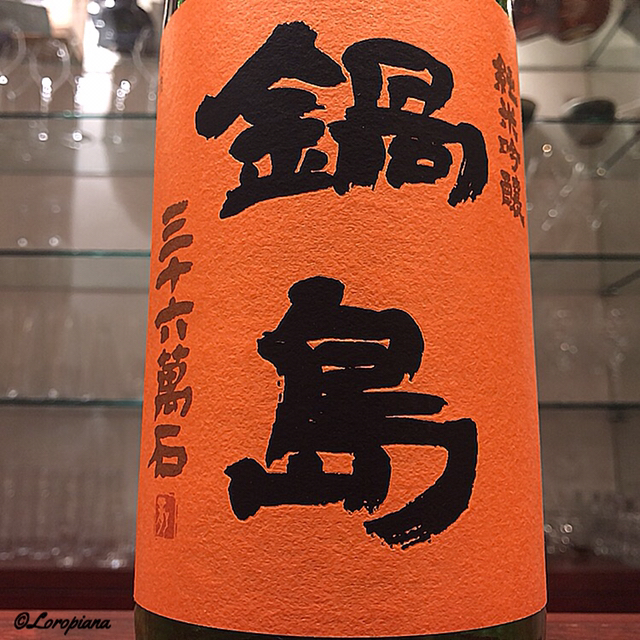 純米吟醸
鍋島
三十六萬石
©Loropiana